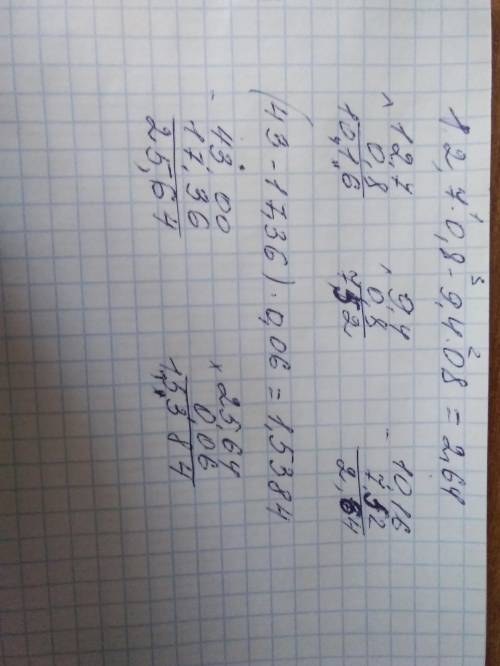 1 3 2
12,7·0,8-9,4·08=2,64
× 12,7 × 9,4 - 1016
0,8 0,8 7,52
10,16 7,52 2,64
(43-17,36)·0,06=1,5384
- 43,00 × 25,64
17,36 0,06
25,64 1,5384